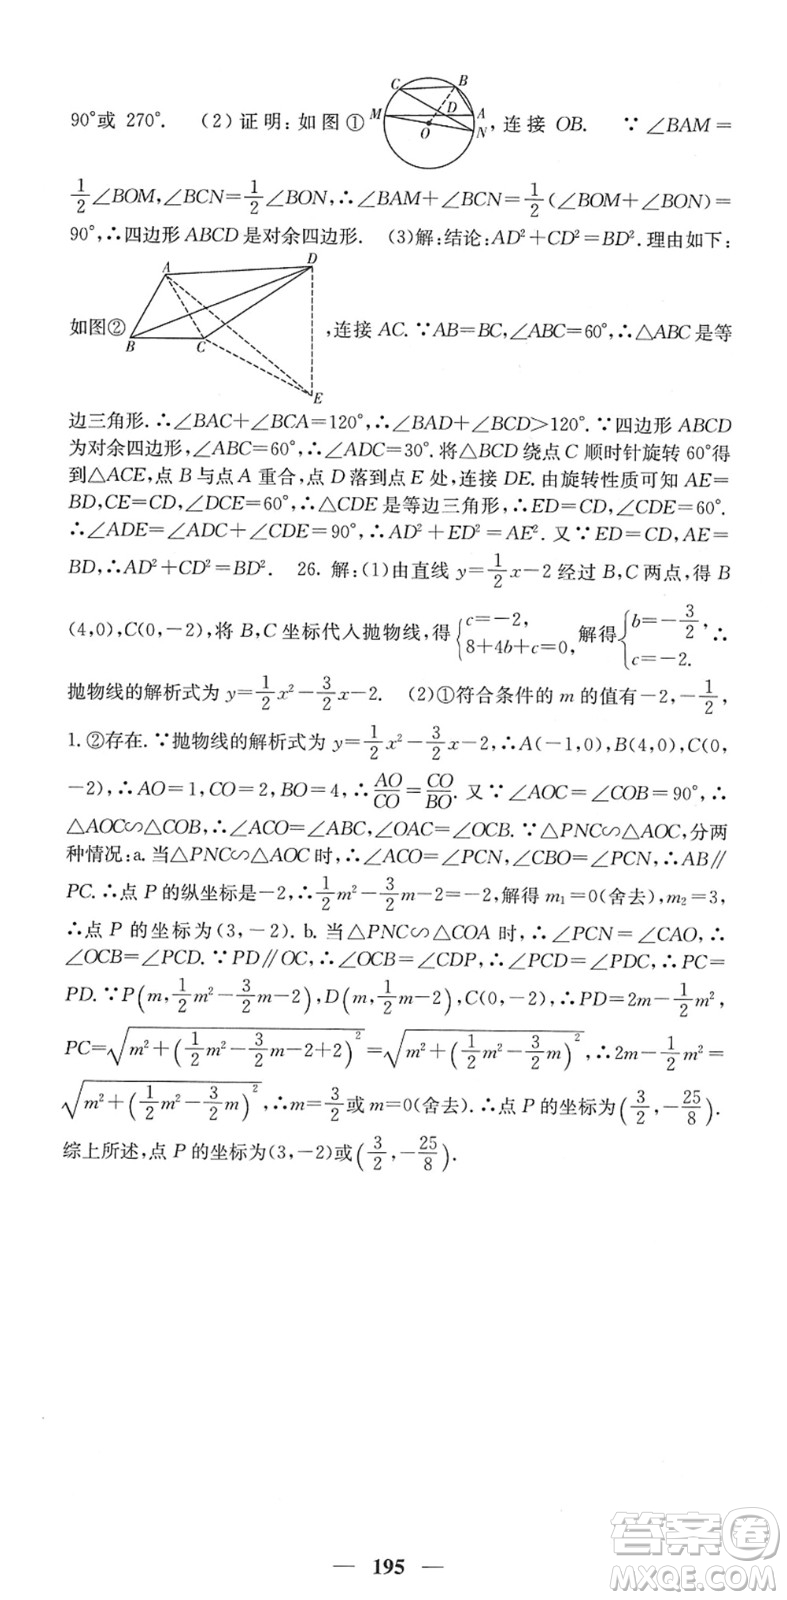 90°或 270°. (2)证明:如图① C B M D A O N ,连接 OB. ∵∠BAM=
1/2∠BOM,∠BCN=1/2∠BON,∴∠BAM+∠BCN=1/2(∠BOM+∠BON)=
90°,∴四边形 ABCD 是对余四边形. (3)解:结论:AD²+CD²=BD².理由如下:
如图② A D B C E ,连接 AC.∵AB=BC,∠ABC=60°,∴△ABC 是等
边三角形.∴∠BAC+∠BCA=120°,∴∠BAD+∠BCD>120°.∵四边形 ABCD
为对余四边形,∠ABC=60°,∴∠ADC=30°.将△BCD 绕点 C 顺时针旋转 60°得
到△ACE,点 B 与点 A 重合,点 D 落到点 E 处,连接 DE.由旋转性质可知 AE=
BD,CE=CD,∠DCE=60°,∴△CDE 是等边三角形,∴ED=CD,∠CDE=60°.
∴∠ADE=∠ADC+∠CDE=90°,∴AD²+ED²=AE².又∵ED=CD,AE=
BD,∴AD²+CD²=BD². 26.解:(1)由直线 y=1/2x-2 经过 B,C 两点,得 B
(4,0),C(0,-2),将 B,C 坐标代入抛物线,得{c=-2, 8+4b+c=0, 解得{b=-3/2, c=-2. ∴
抛物线的解析式为 y=1/2x²-3/2x-2. (2)①符合条件的 m 的值有-2,-1/2,
1.②存在.∵抛物线的解析式为 y=1/2x²-3/2x-2,∴A(-1,0),B(4,0),C(0,
-2),∴AO=1,CO=2,BO=4,∴AO/CO=CO/BO.又∵∠AOC=∠COB=90°,∴
△AOC∽△COB,∴∠ACO=∠ABC,∠OAC=∠OCB.∵△PNC∽△AOC,分两
种情况:a.当△PNC∽△AOC 时,∴∠ACO=∠PCN,∠CBO=∠PCN,∴AB∥
PC.∴点 P 的纵坐标是-2,∴1/2m²-3/2m-2=-2,解得 m₁=0(舍去),m₂=3,
∴点 P 的坐标为(3,-2).b.当△PNC∽△COA 时,∴∠PCN=∠CAO,∴
∠OCB=∠PCD.∵PD∥OC,∴∠OCB=∠CDP,∴∠PCD=∠PDC,∴PC=
PD.∵P(m,1/2m²-3/2m-2),D(m,1/2m-2),C(0,-2),∴PD=2m-1/2m²,
PC=√(m²+(1/2m²-3/2m-2+2)²)=√(m²+(1/2m²-3/2m)²),∴2m-1/2m²=
√(m²+(1/2m²-3/2m)²),∴m=3/2或 m=0(舍去).∴点 P 的坐标为(3/2,-25/8).
综上所述,点 P 的坐标为(3,-2)或(3/2,-25/8).
— 195 —
答案圈
MXQE.COM